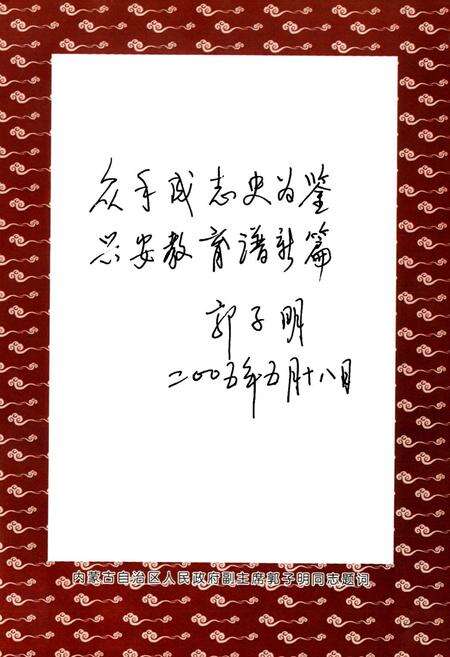 众手成志史为鉴
兴安教育谱新篇
郭子明
二〇〇五年五月十八日
内蒙古自治区人民政府副主席郭子明同志题词